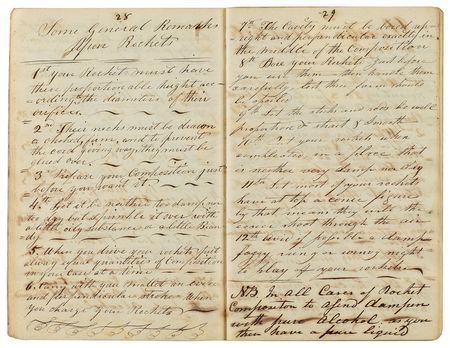 28
Some General Remarks
Upon Rockets
1st your Rockets must have
their proportionable height acc-
ording the diameters of their
orifices
2nd Their necks must be drawn
a choked firm, and to prevent
the cord giving way, they must be
glued over.
3 Prepare your Composition just
before you want it
4th Let it be neither too damp nor
too dry but sprinkle it over with
a little oily substance or a little Bran-
dy
5. When you drive your rockets put
always equal quantities of Composition
in your case at a time
6. Carry with you mallet an even
and perpendicular stroke When
you charge your Rockets
29
7th The Cavity must be bored up-
right and perpendicular exactly in
the middle of the Composition
8th Bore your Rockets just before
you use them then handle them
carefully lest their form should
be spoiled
9th Let the sticks and rods be well
proportion'd strait & smooth
10th Put your rockets when
completed in a place that
is neither very damp nor dry
11th Let most of your rockets
have at top a conic figure
by that means they will the
easier shoot through the air
12th avoid if possible a damp
foggy rainy or windy night
to play off your rockets
NB In all Cases of Rocket
Composition to dampen
with pure alcohol, as you
then have a pure liquid